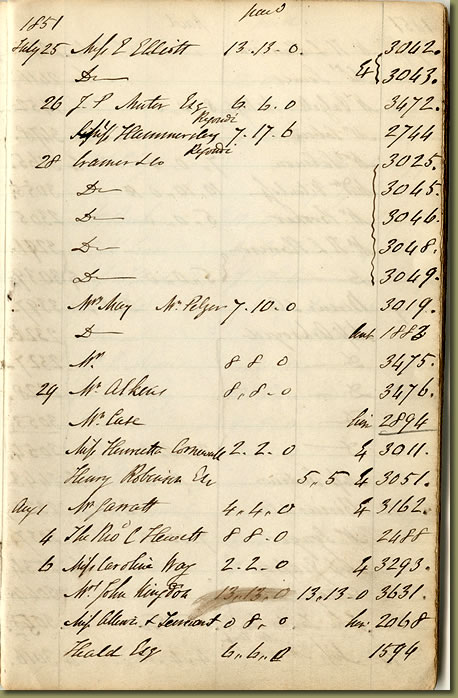 1851 paid
July 25 Miss E Elliott 13-13-0. 3042.
Do 4 3043.
26 J. P. Muter Esq 6. 6. 0 3472.
Miss Hammersley Regondi 7. 17. 6 2744
28 Cramer & Co Regondi 3025.
Do 3045.
Do 3046.
Do 3048.
Do 3049.
Mrs May Mr Pelzer 7. 10. 0 3019.
Do 1883
Mr 8 8 0 3475.
29 Mr Atkins 8, 8. 0 3476.
Mr Case 2894
Miss Henrietta Cornwall 2. 2. 0 4 3011.
Henry Robinson Esq 5,, 5 4 3051.
Aug 1 Mr Jarratt 4. 4. 0 4 3162.
4 The Revd C Hewett 8 8. 0 2488
6 Miss Caroline Way 2. 2. 0 4 3293.
Mrs John Kingdon 13. 13. 0 13,, 13. 0 3631.
Miss & Tennant. 0 8. 0 2068
Heald Esq 6. 6. 0 1594